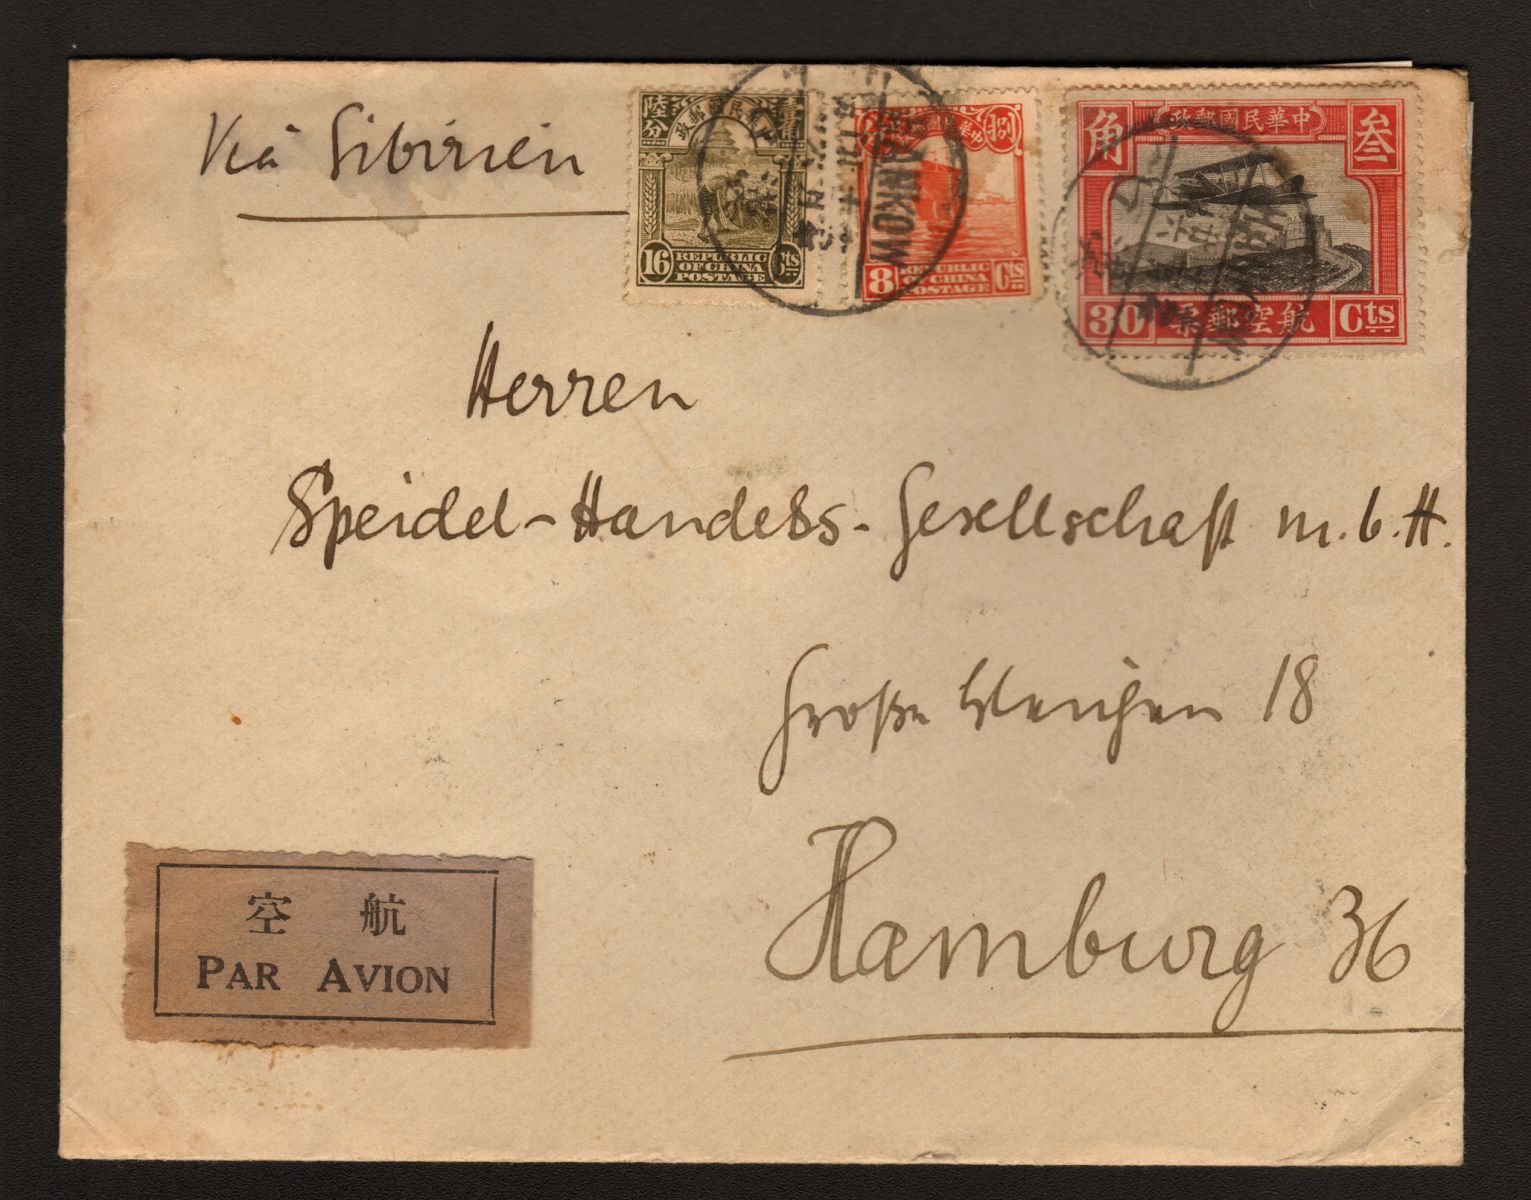 Via Sibirien
陸分 政郵國民華中 壹角
16 REPUBLIC OF CHINA POSTAGE Cts
捌
8 REPUBLIC OF CHINA POSTAGE Cts
HANKOW
角 政郵國民華中 叁
30 票郵空航 Cts
HANKOW
Herren
Speidel-Handels-Gesellschaft m.b.H.
Große Bleichen 18
Hamburg 36
空 航
PAR AVION